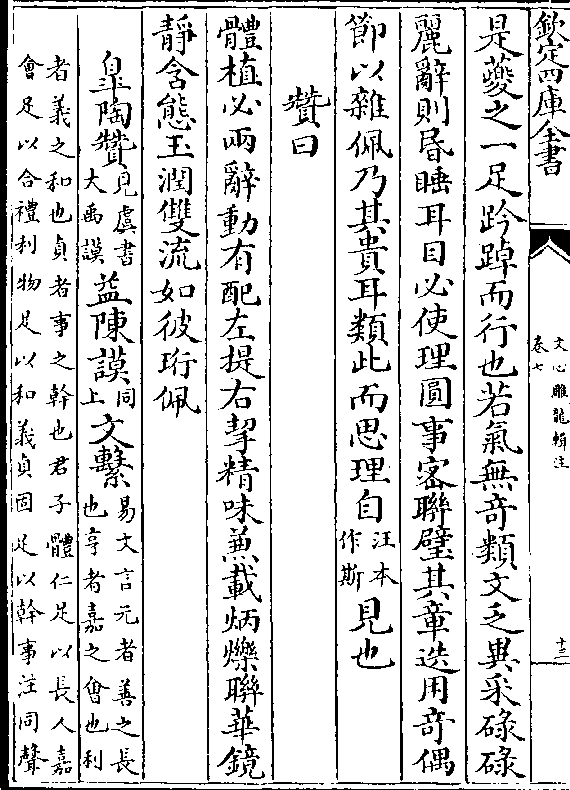 欽定四庫全書
文心雕龍輯注
卷七
十三
是夔之一足趻踔而行也若氣無奇類文乏異采碌碌
麗辭則昏睡耳目必使理圓事密聯璧其章迭用奇偶
節以雜佩乃其貴耳類此而思理自汪本作斯見也
贊曰
體植必兩辭動有配左提右挈精味兼載炳爍聯華鏡
靜含態玉潤雙流如彼珩佩
臯陶贊見虞書大禹謨益陳謨同上文繫易文言元者善之長也亨者嘉之會也利
者義之和也貞者事之幹也君子體仁足以長人嘉
會足以合禮利物足以和義貞固足以幹事注同聲